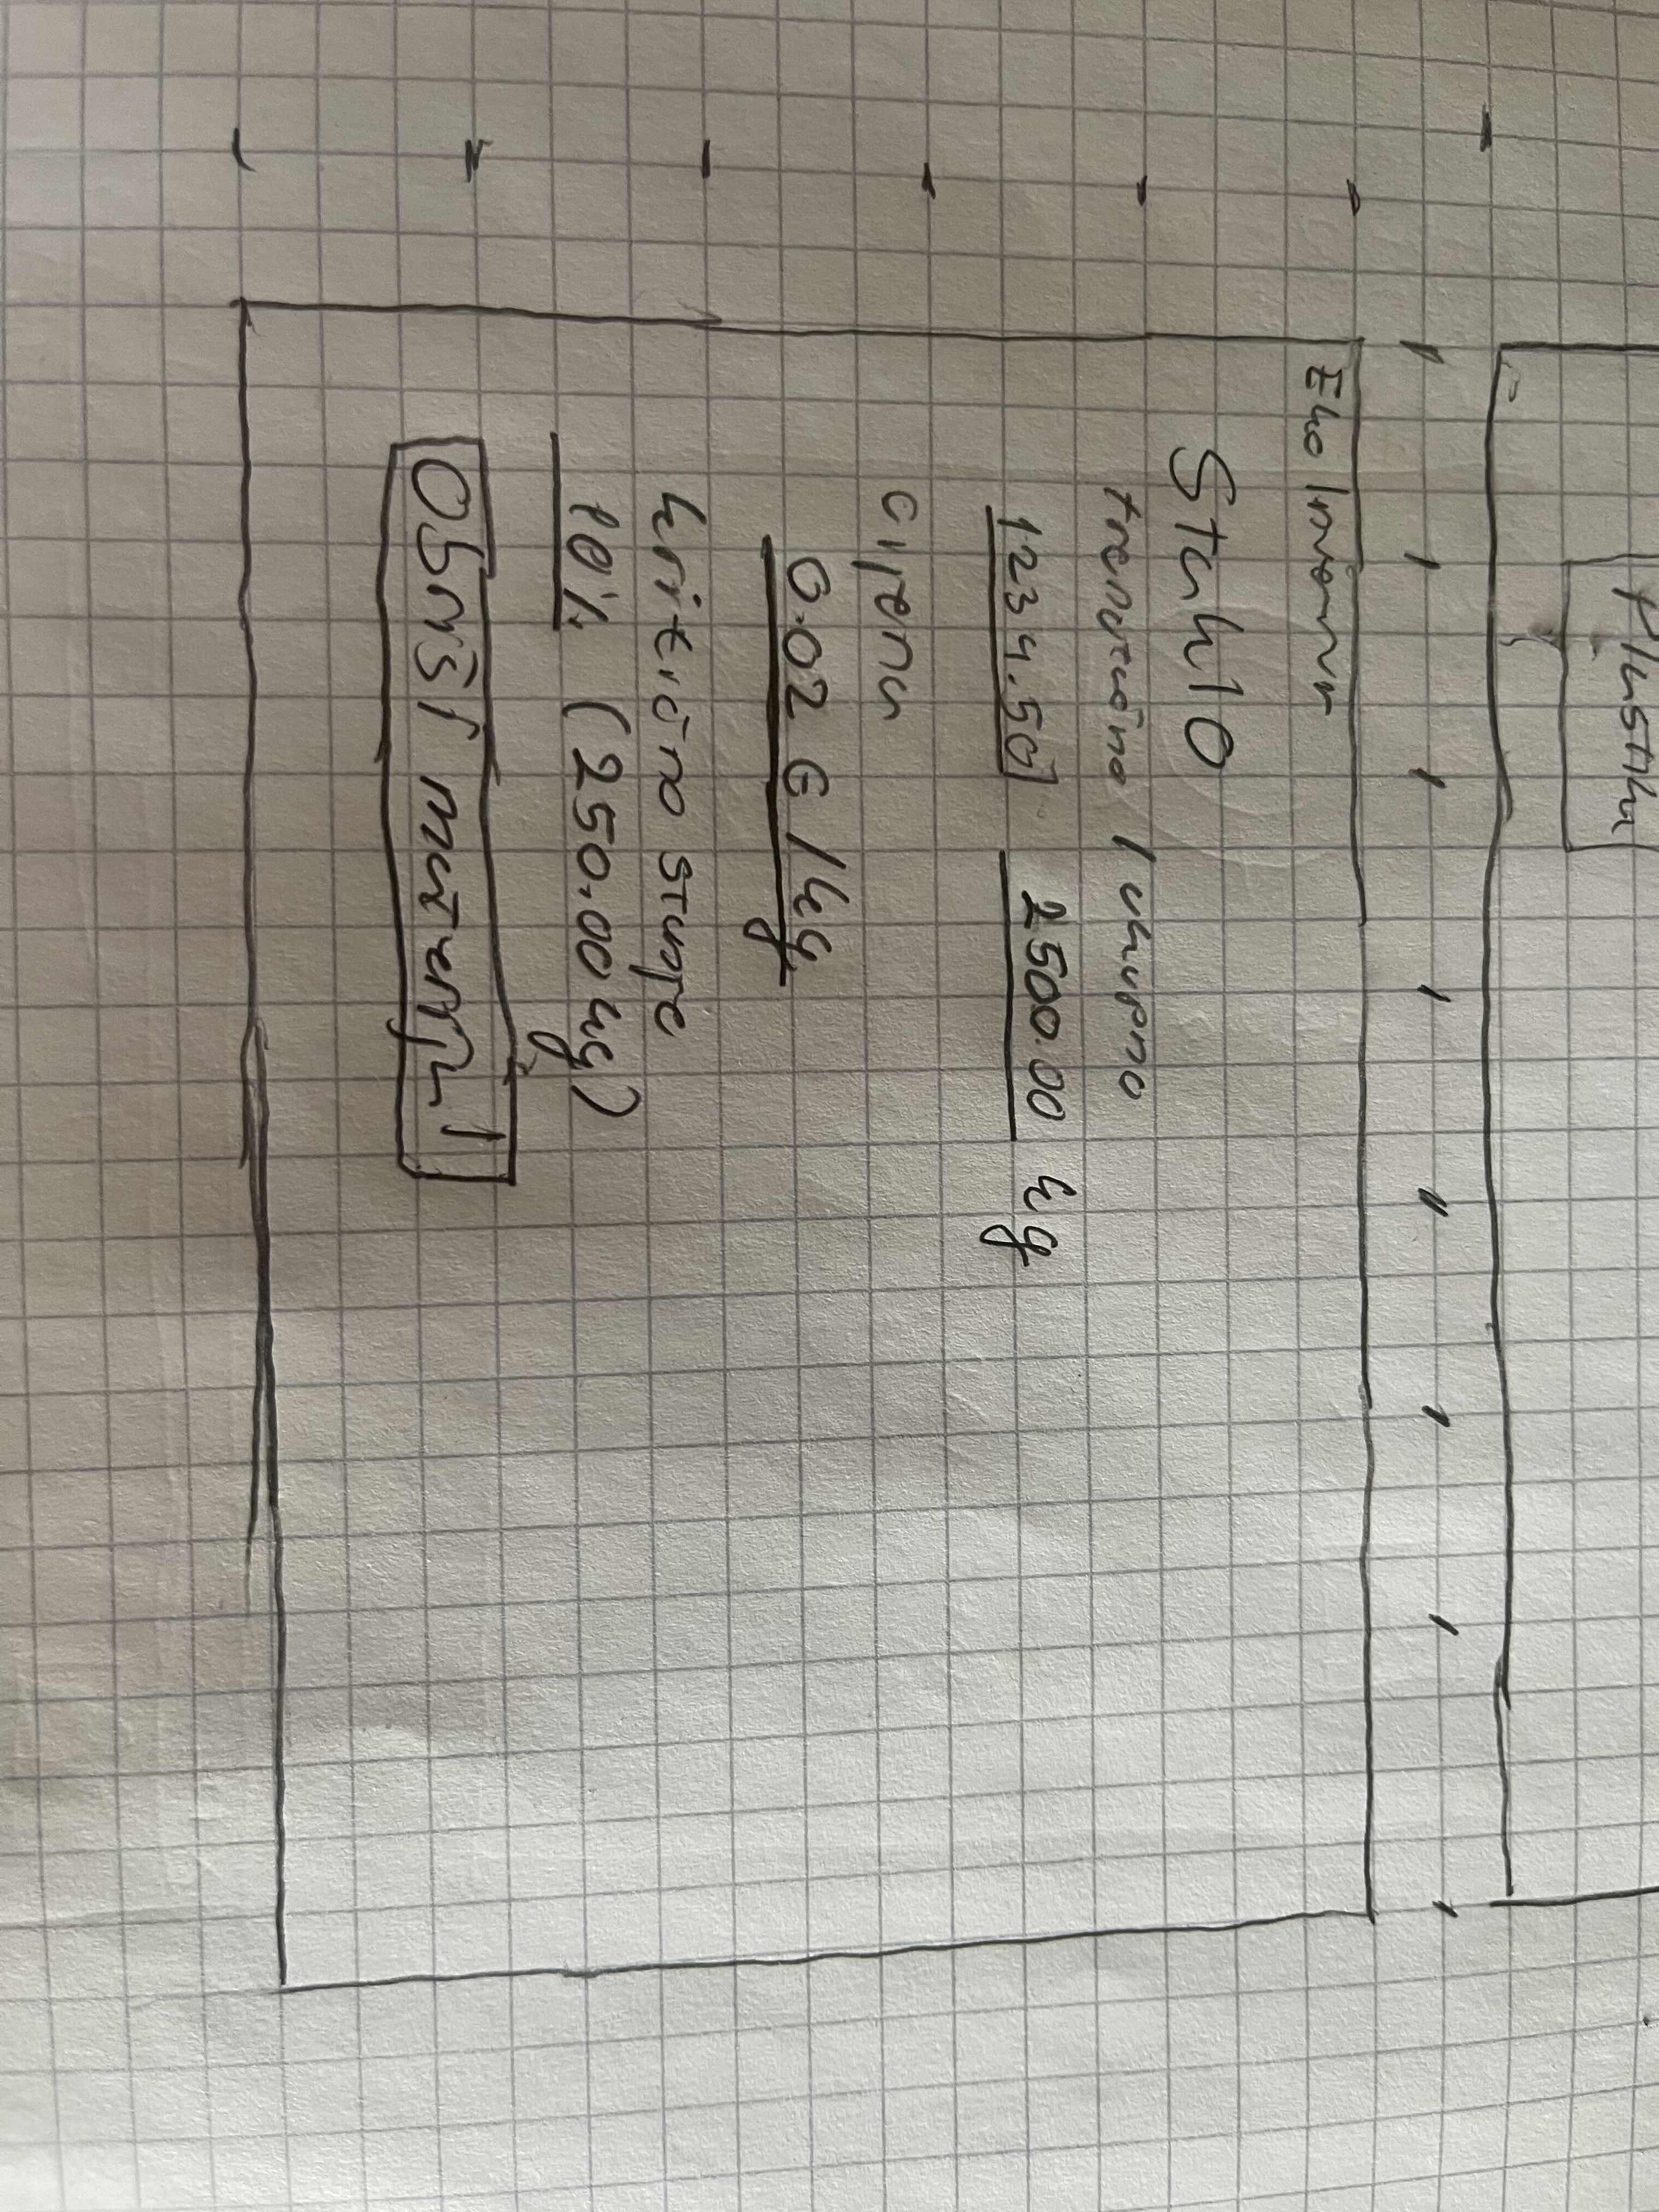 Plastika
Eko Inventar
Staklo
trenutačno / ukupno
1234.50 2500.00 kg
cijena
0.02 € /kg
kritično stanje
10% (250.00 kg)
Obriši materijal